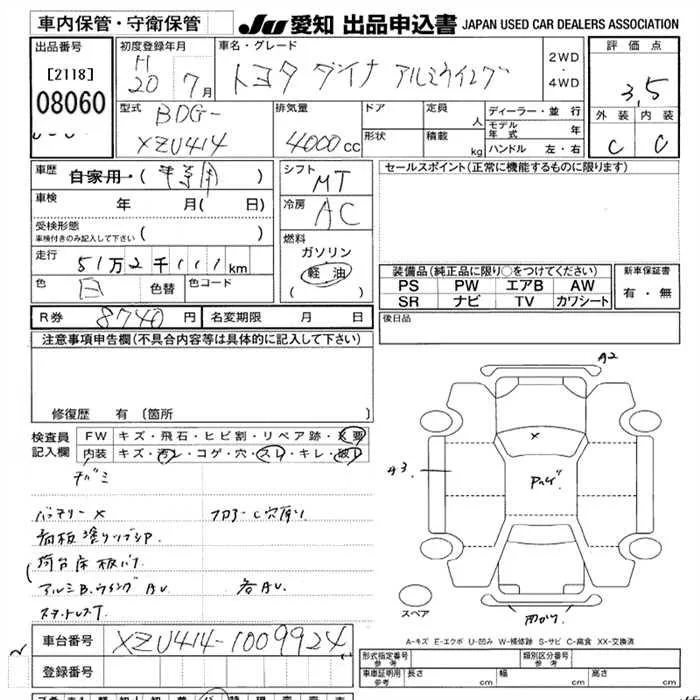 車内保管・守衛保管
JU 愛知 出品申込書 JAPAN USED CAR DEALERS ASSOCIATION
出品番号 初度登録年月 車名・グレード 評価点
[2118] H 20 年 7月 トヨタ ダイナ アルミウイング 2WD・4WD 3.5
08060
型式 排気量 ドア 定員 人 ディーラー・並行 外装 内装
BDG-XZU414 4000cc 形状 積載 kg モデル年式 年 C C
ハンドル 左・右
車歴 自家用・( ) シフト MT セールスポイント(正常に機能するものに限ります)
車検 年 月( 日) 冷房 AC
受検形態 車検付きのみ記入して下さい ( )
燃料 ガソリン
走行 51万2千111km 軽油
( )
色 白 色替 色コード
装備品(純正品に限り○をつけてください) 新車保証書
PS PW エアB AW 有・無
SR ナビ TV カワシート
R券 8740円 名変期限 月 日 後日品
注意事項申告欄(不具合内容等は具体的に記入して下さい)
修復歴 有 (箇所
検査員記入欄 FW キズ・飛石・ヒビ割・リペア跡・X要
内装 キズ・汚レ・コゲ・穴・スレ・キレ・破レ
A2
X
A3
バッテリー X フロアーC穴有り
荷台床板バケ
アルミB.ウイングAU 各AU
スペア
A-キズ E-エクボ U-凹み W-補修跡 S-サビ C-腐食 XX-交換済
車台番号 XZU414-1009924
登録番号
形式指定番号 参考 類別区分番号 参考
車庫証明用 参考 長さ cm 幅 cm 高さ cm